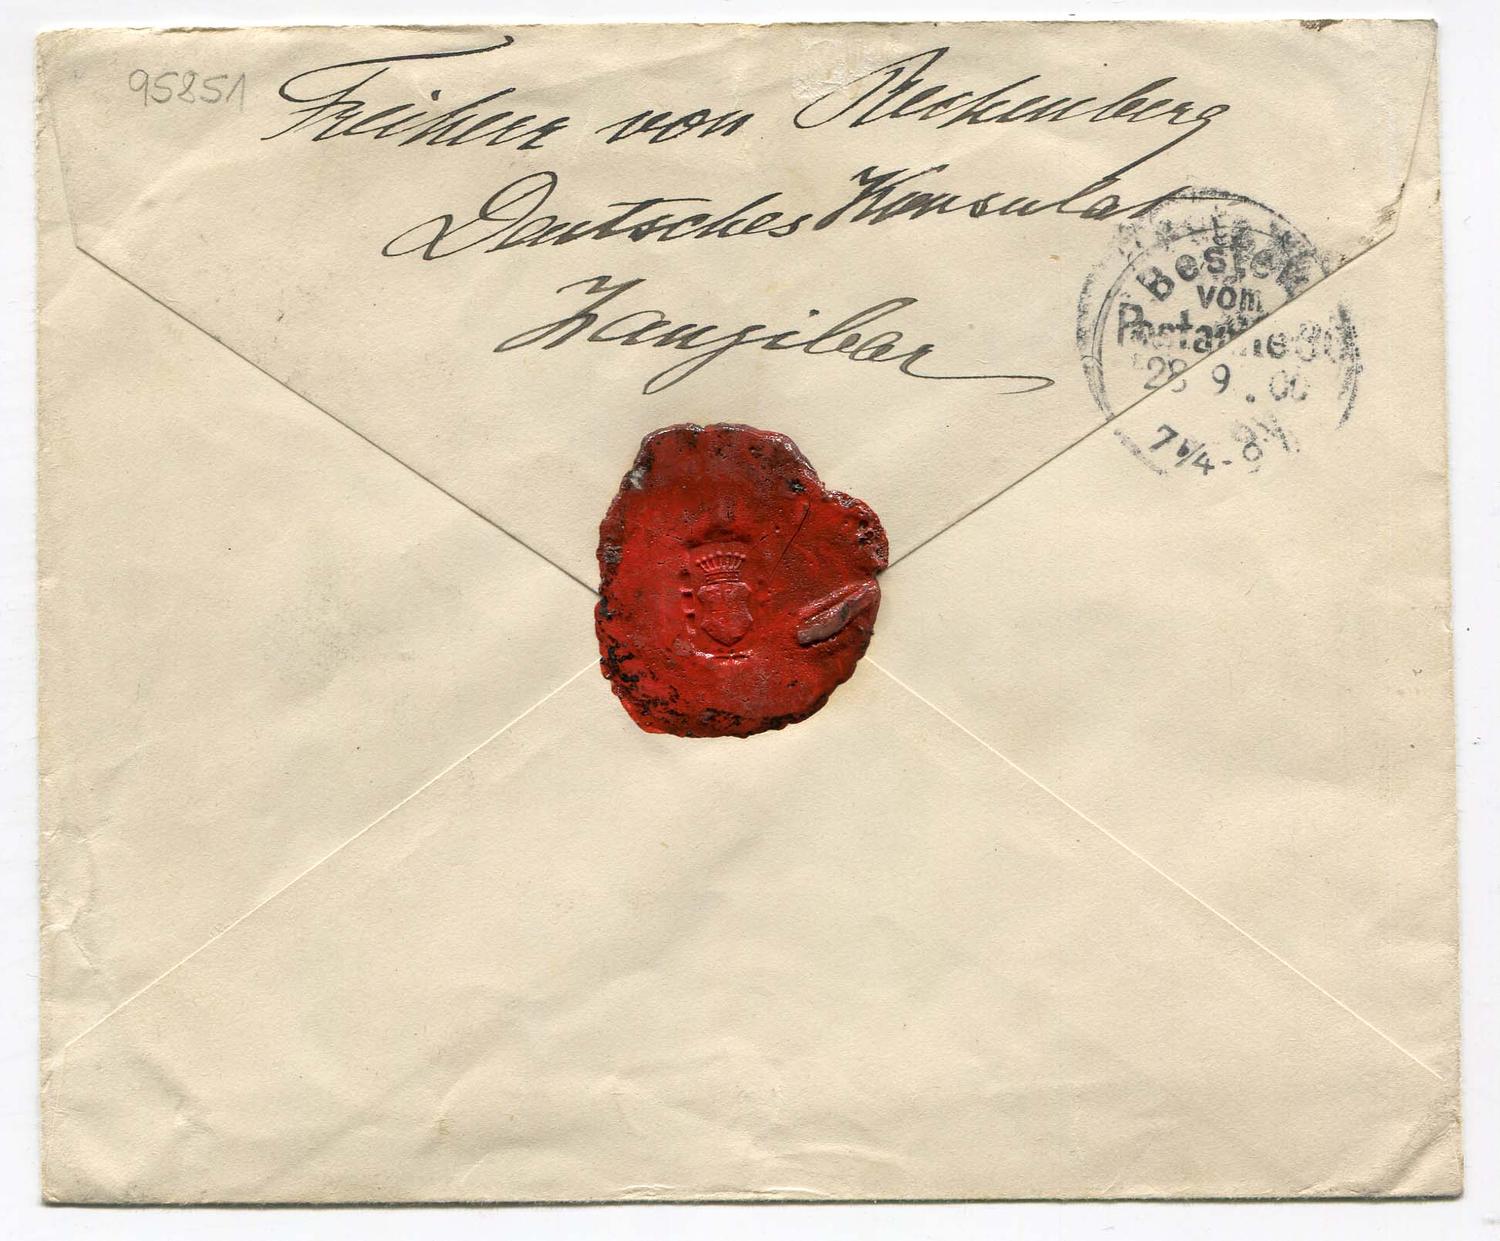 95851
Freiherr von Rechenberg
Deutsches Konsulat
Zanzibar
Bestellt
vom
Postamte
28 9 . 00
7 1/4 - 8